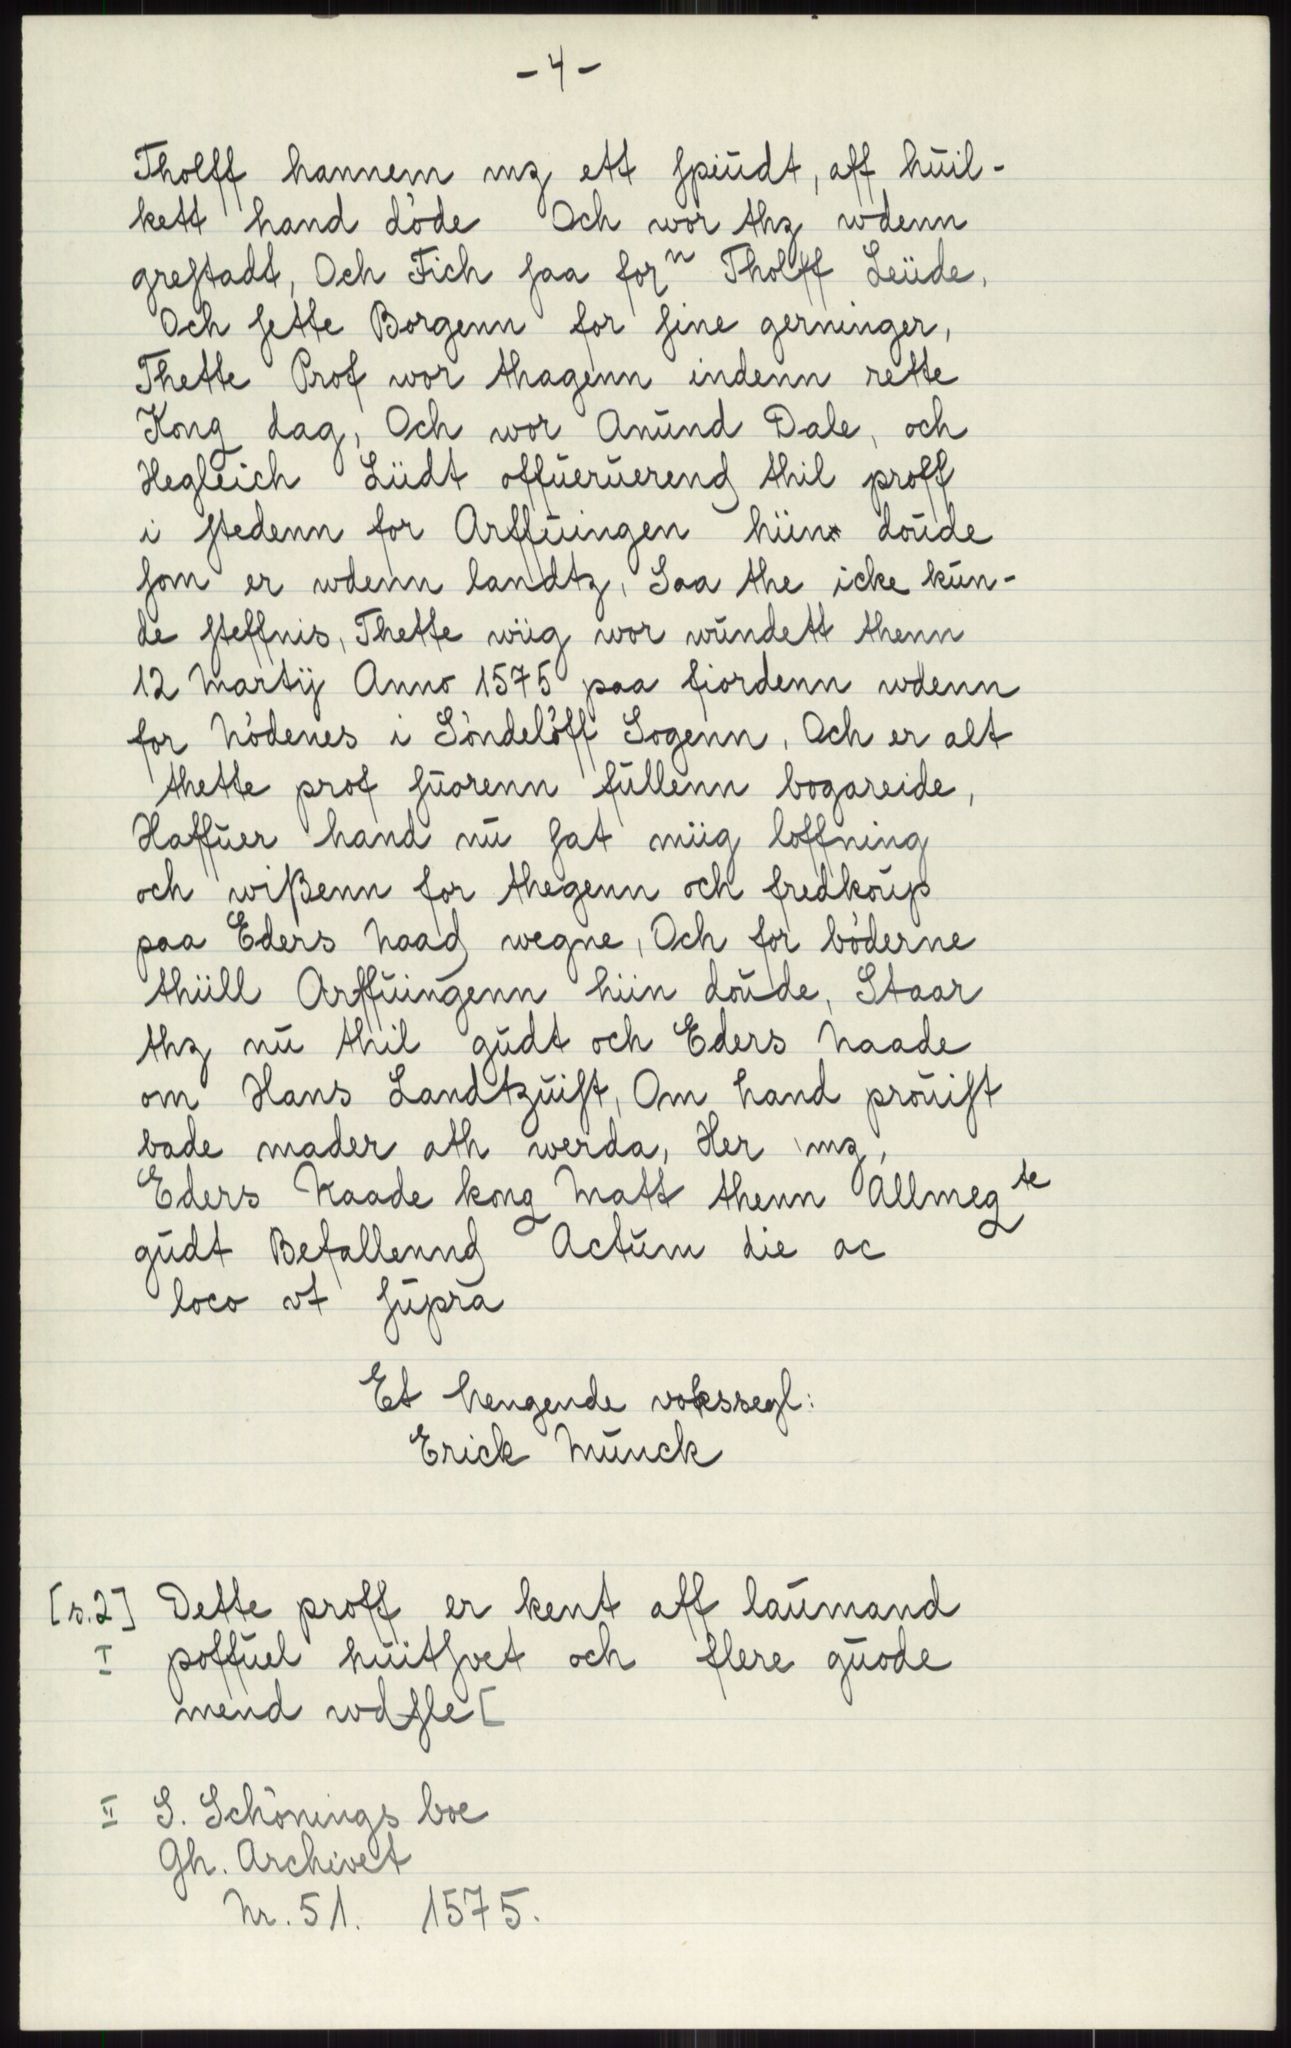 - 4 -
Tholff hannem mz ett spiudt, aff huil-
kett hand döde Och wor thz wdenn
grestadt, Och Fich saa forⁿ Tholff Leüde,
Och sette Borgenn for sine gerninger,
Thette Prof wor thagenn indenn rette
Kong dag, Och wor Anund Dale, och
Hegleich Lüdt offueruerend thil proff
i stedenn for Arffuingen hiin doude
som er wdenn landtz, Saa the icke kun-
de steffnis, Thette wiig wor wundett thenn
12 Martij Anno 1575 paa fiordenn wdenn
for Nödenes i Söndelöff Sogenn, Och er alt
thette prof suorenn fullenn bogareide,
Haffuer hand nu sat miig loffning
och wißenn for thegenn och fredkoup
paa Eders Naad wegne, Och for böderne
thiill Arffuingenn hiin doude, Staar
thz nu thil gudt och Eders Naade
om Hans Landtzuist, Om hand prouist
bade mader ath werda, Her mz,
Eders Naade kong Matt thenn Allmegᵗᵉ
gudt Befallennd Actum die ac
loco vt supra
Et hengende vokssegl:
Erick Munck
[s.2] Dette proff er kent aff laumand
I poffuel huitsvet och flere guode
mend wdsle[
II S. Schönings boe
Gh. Archivet
Nr. 51. 1575.